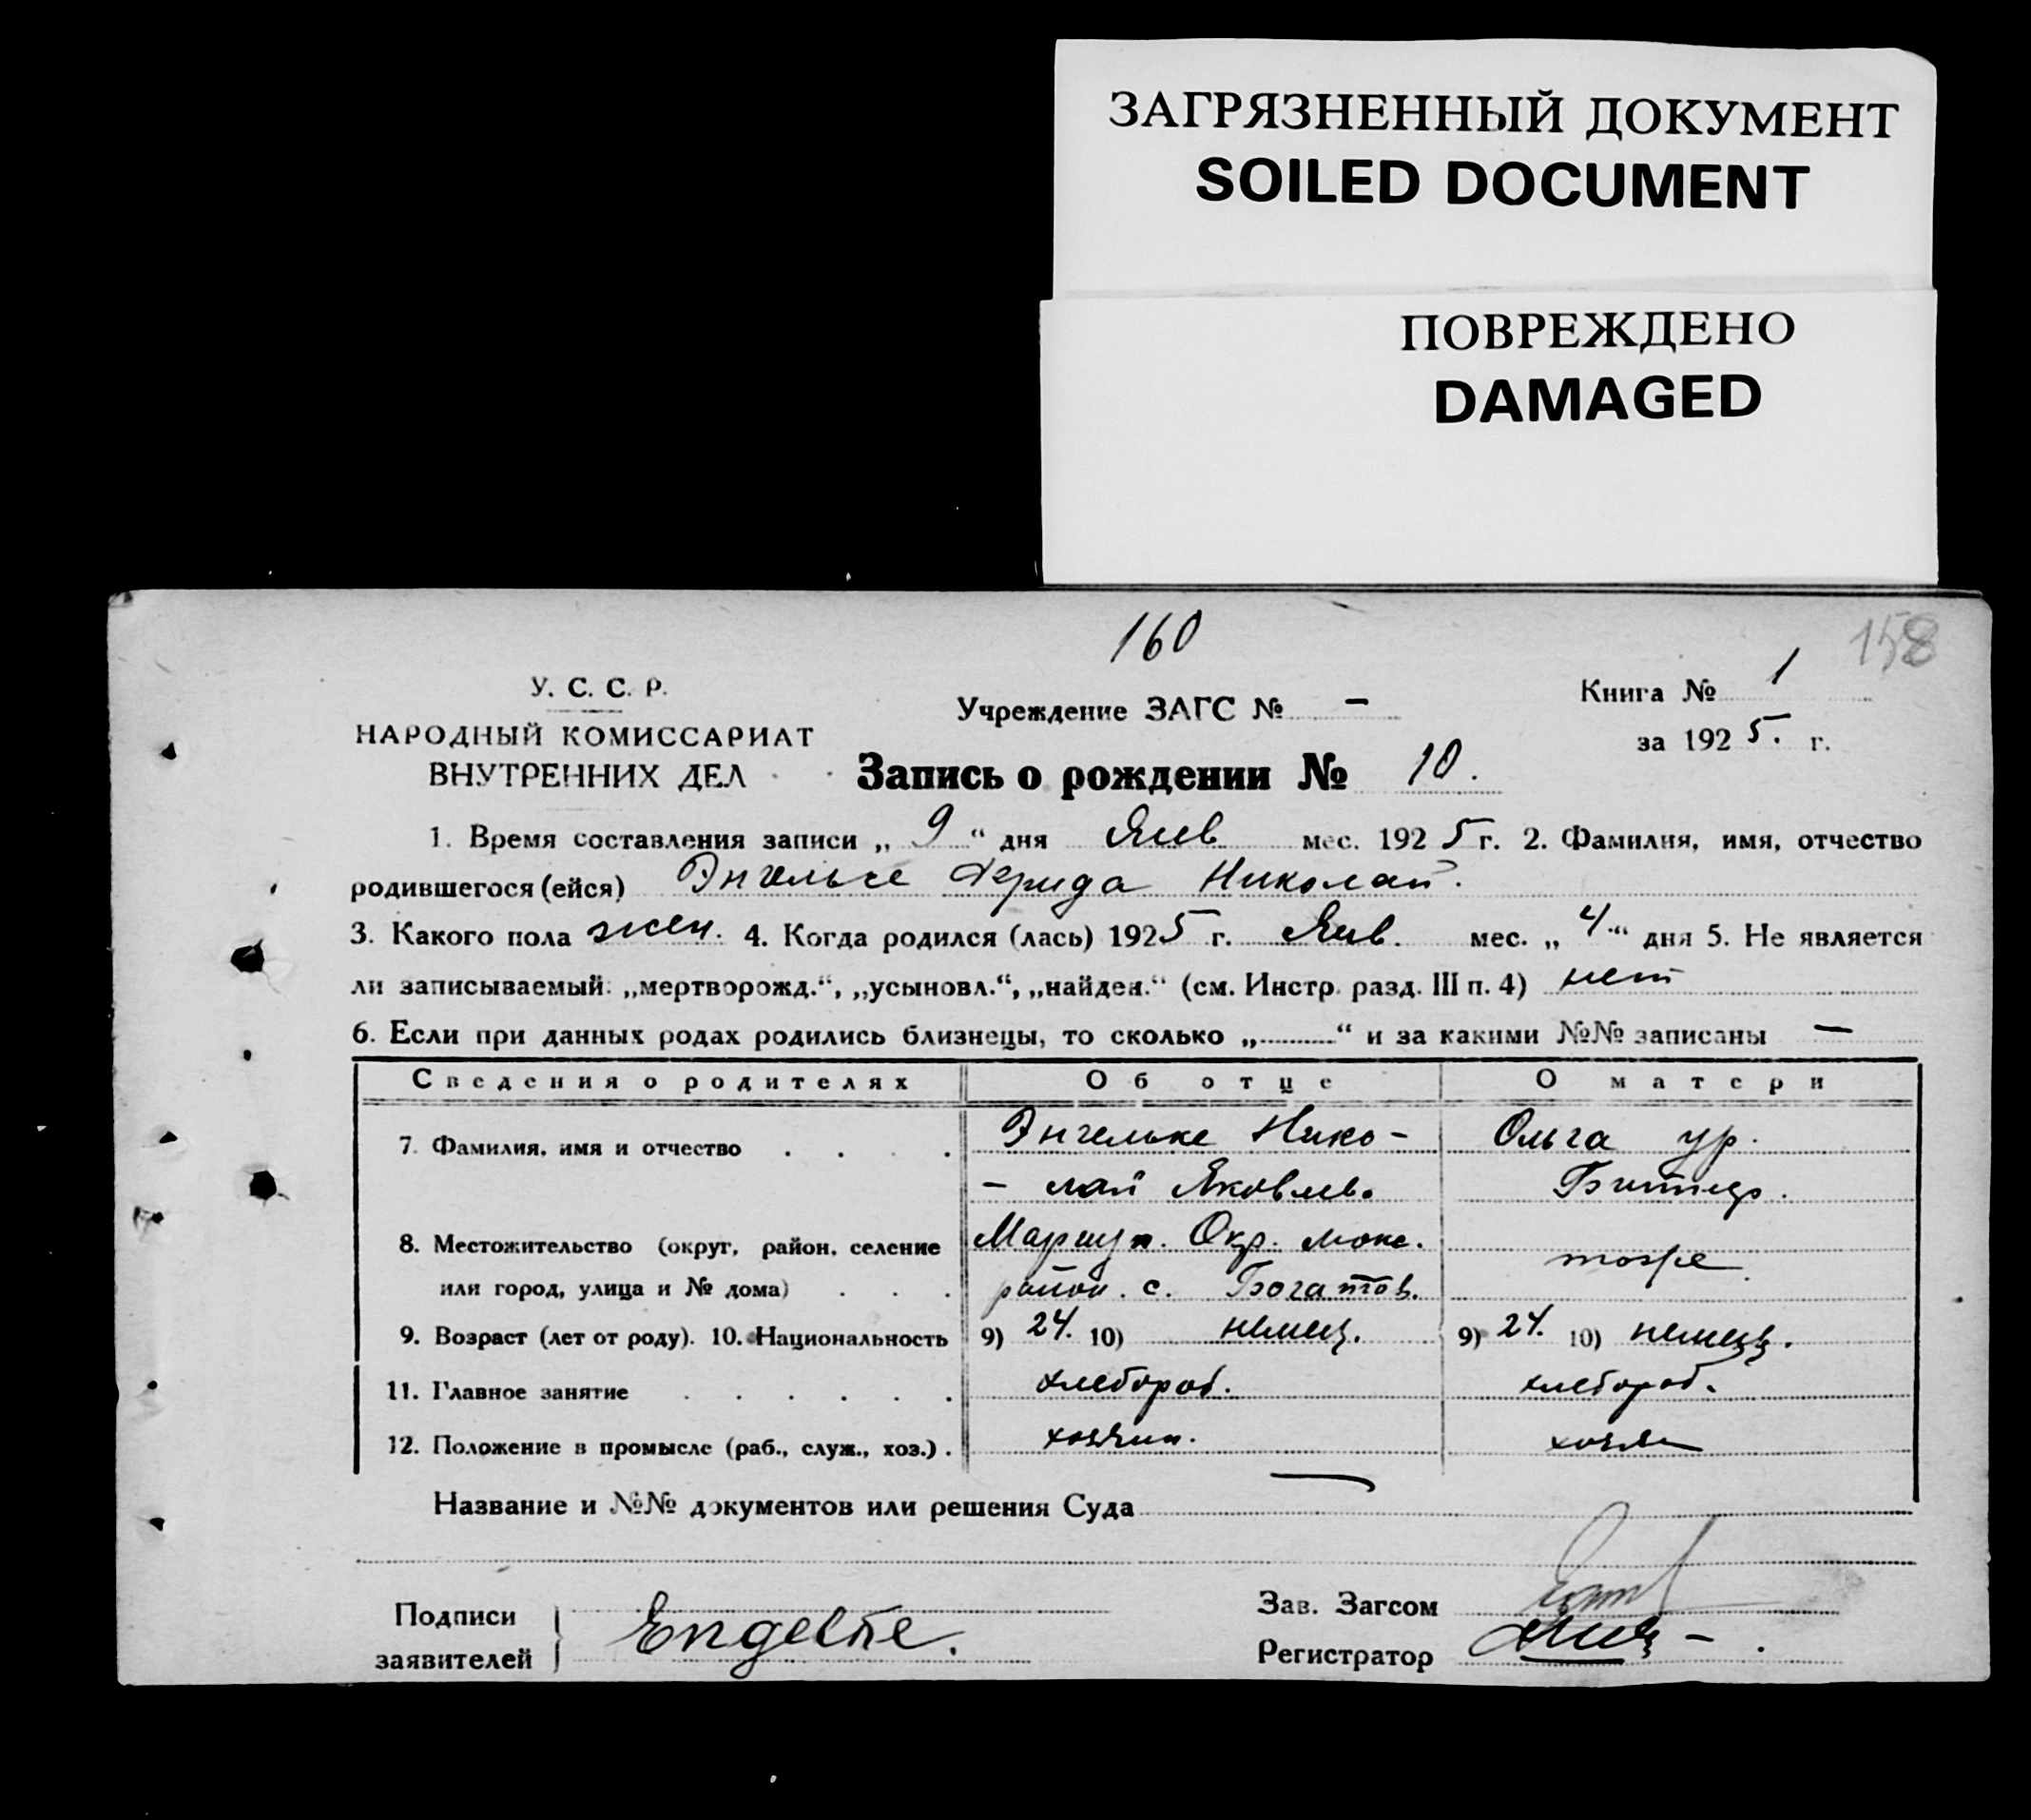 ЗАГРЯЗНЕННЫЙ ДОКУМЕНТ
SOILED DOCUMENT
ПОВРЕЖДЕНО
DAMAGED
160
158
У. С. С. Р.
НАРОДНЫЙ КОМИССАРИАТ
ВНУТРЕННИХ ДЕЛ
Учреждение ЗАГС № —
Книга № 1
за 1925. г.
Запись о рождении № 10.
1. Время составления записи „ 9 “ дня Янв мес. 1925 г. 2. Фамилия, имя, отчество
родившегося (ейся) Энгельке Фрида Николай.
3. Какого пола жен. 4. Когда родился (лась) 1925 г. Янв. мес. „ 4 “ дня 5. Не является
ли записываемый: „мертворожд.“, „усыновл.“, „найден.“ (см. Инстр. разд. III п. 4) нет
6. Если при данных родах родились близнецы, то сколько „..........“ и за какими №№ записаны —
Сведения о родителях Об отце О матери
7. Фамилия, имя и отчество Энгельке Нико- Ольга ур.
- лай Яковлев. Битнер.
8. Местожительство (округ, район, селение Мариуп. Окр. Люкс. тоже
или город, улица и № дома) район. с. Богатов.
9. Возраст (лет от роду). 10. Национальность 9) 24. 10) немец. 9) 24. 10) немец.
11. Главное занятие хлебороб. хлебороб.
12. Положение в промысле (раб., служ., хоз.) . хозяин.
Название и №№ документов или решения Суда
Подписи
заявителей
Engelke.
Зав. Загсом
Регистратор